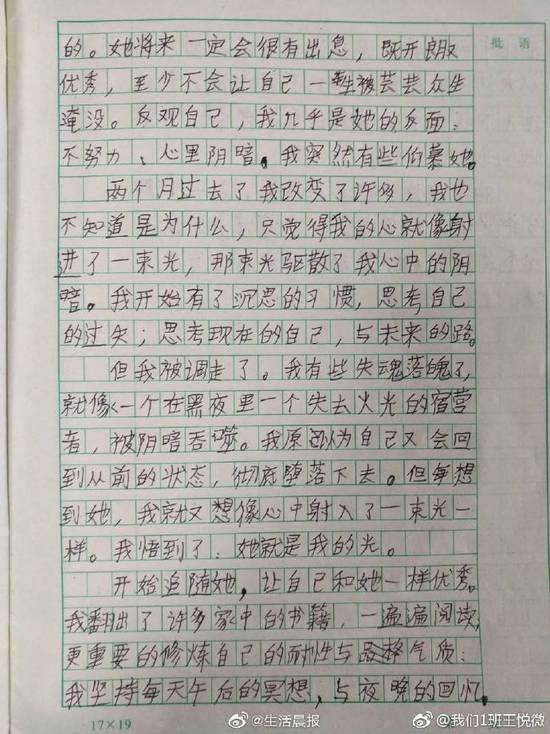 批语
的。她将来一定会很有出息，既开朗又
优秀，至少不会让自己一生被芸芸众生
淹没。反观自己，我几乎是她的反面：
不努力、心里阴暗。我突然有些伯慕她。
两个月过去了我改变了许多，我也
不知道是为什么，只觉得我的心就像射
进了一束光，那束光驱散了我心中的阴
暗。我开始有了沉思的习惯，思考自己
的过失；思考现在的自己，与未来的路。
但我被调走了。我有些失魂落魄了，
就像一个在黑夜里一个失去火光的宿营
者，被阴暗吞噬。我原以为自己又会回
到从前的状态，彻底堕落下去。但每想
到她，我就又想像心中射入了一束光一
样。我悟到了：她就是我的光。
开始追随她，让自己和她一样优秀。
我翻出了许多家中的书籍，一遍遍阅读，
更重要的修炼自己的耐性与品格气质：
我坚持每天午后的冥想，与夜晚的回忆。
17×19
@生活晨报
@我们1班王悦微